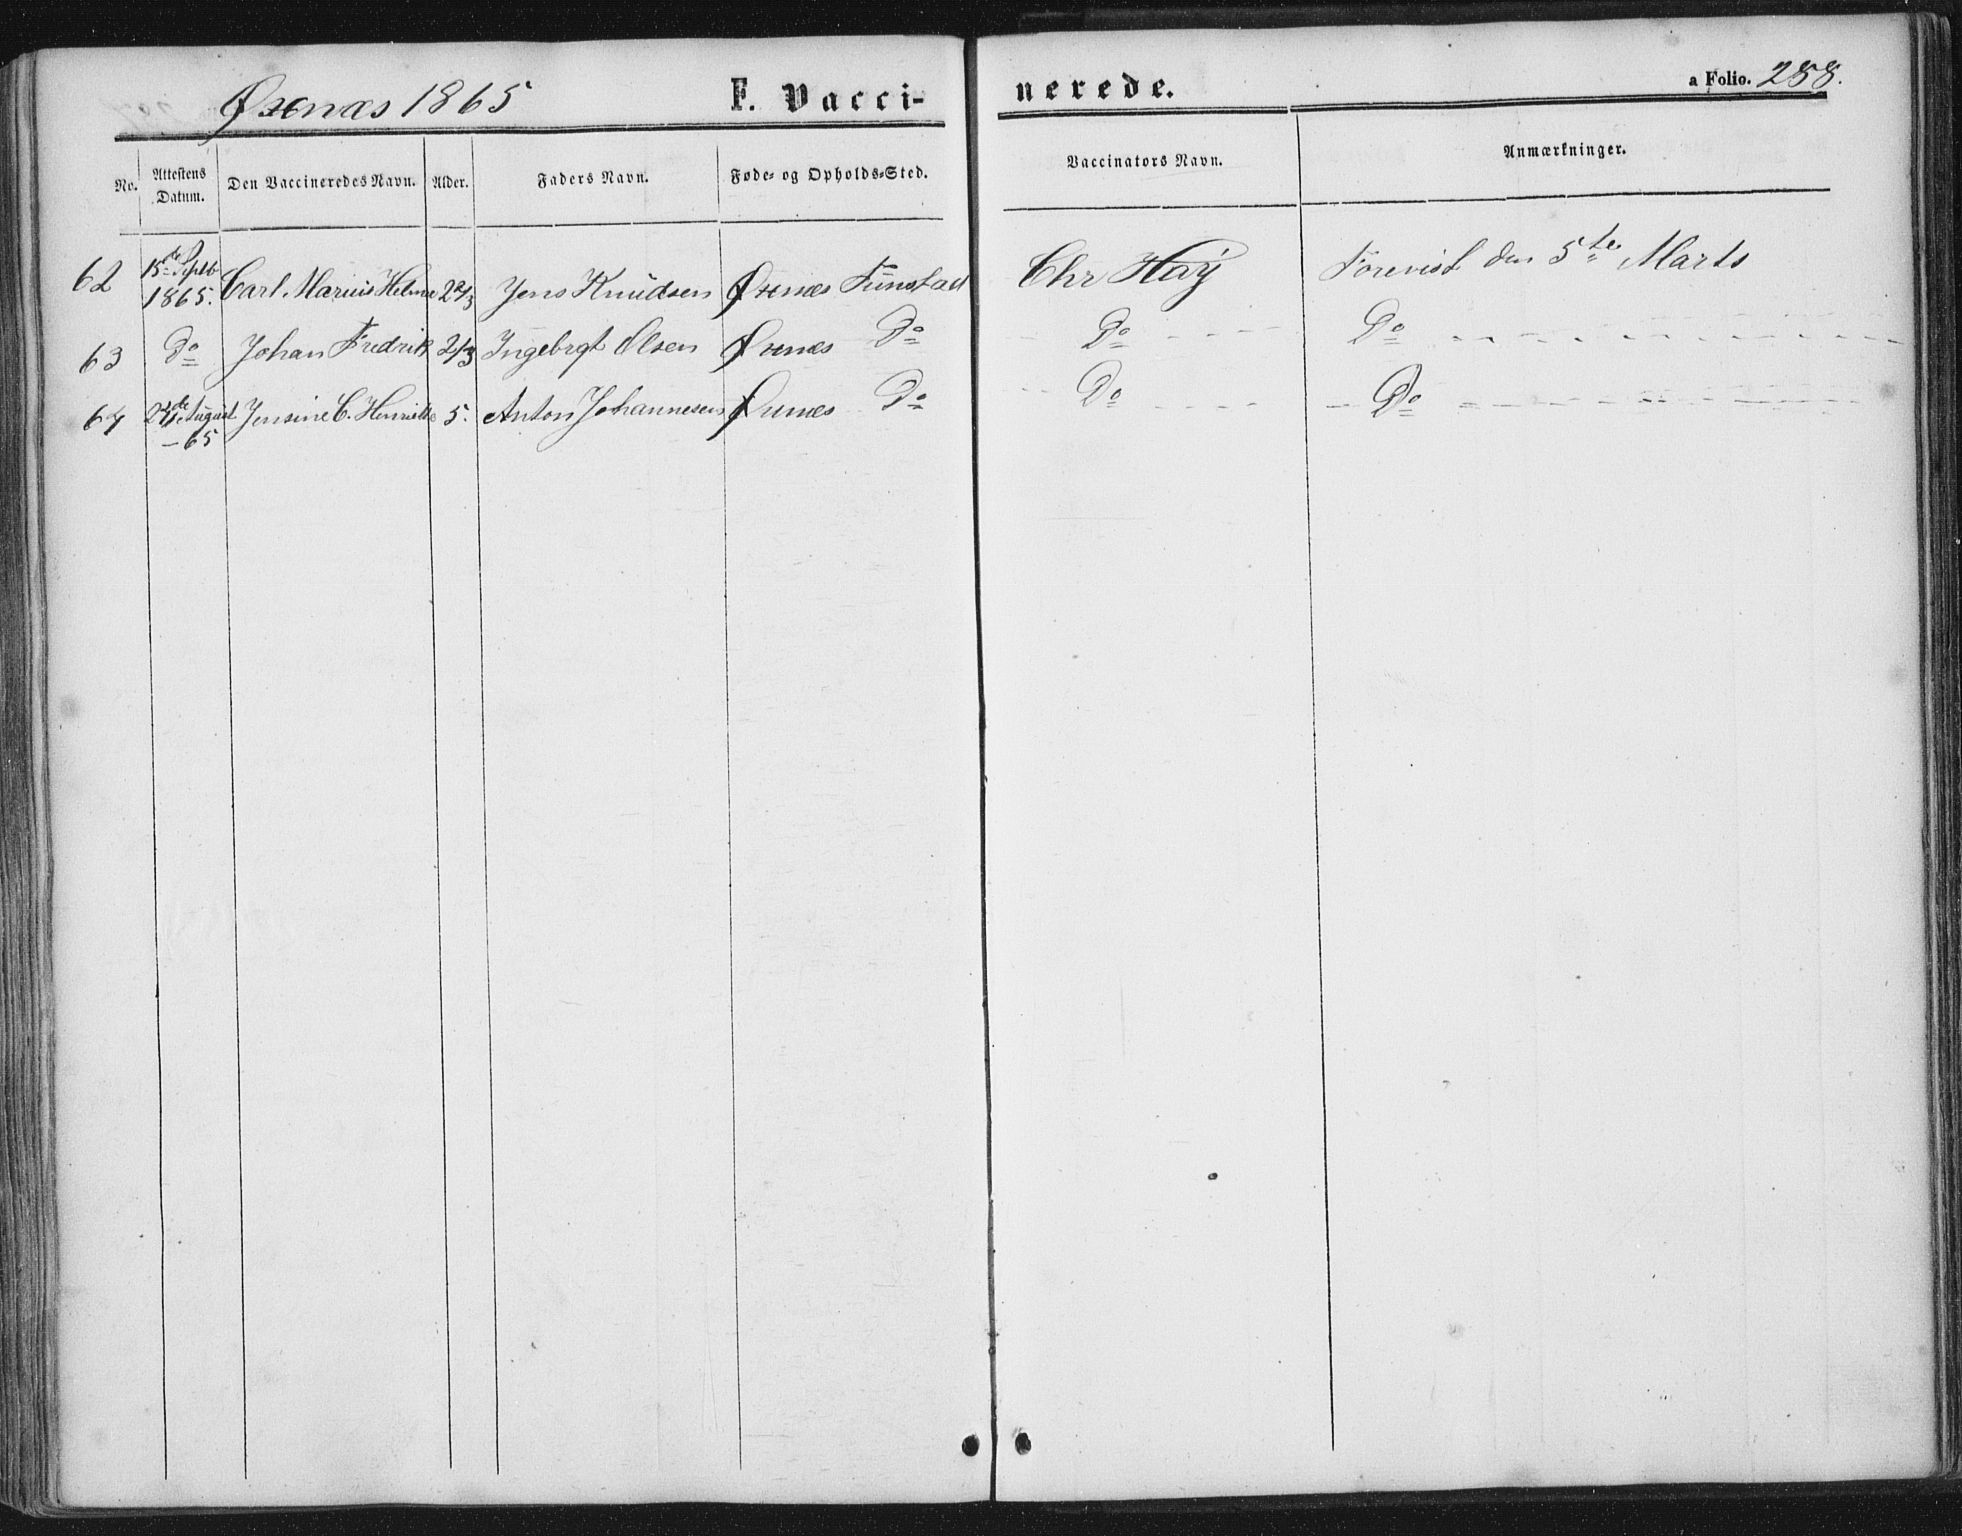 Øxnæs 1865 F. Vacci-nerede. a Folio. 258.
No. Attestens Datum. Den Vaccineredes Navn. Alder. Faders Navn. Føde- og Opholds-Sted. Vaccinators Navn. Anmærkninger.
62 15de Septb 1865. Carl Marius Helmer Jens Knudsen Øxnes Tunstad Chr Høy Forevist den 5te Marts
63 Do Johan Fredrik 2/3 Ingebrgt Olsen Øxnes Do Do Do
64 24de August - 65 Jensine C. Henriette 5. Anton Johannesen Øxnes Do Do Do